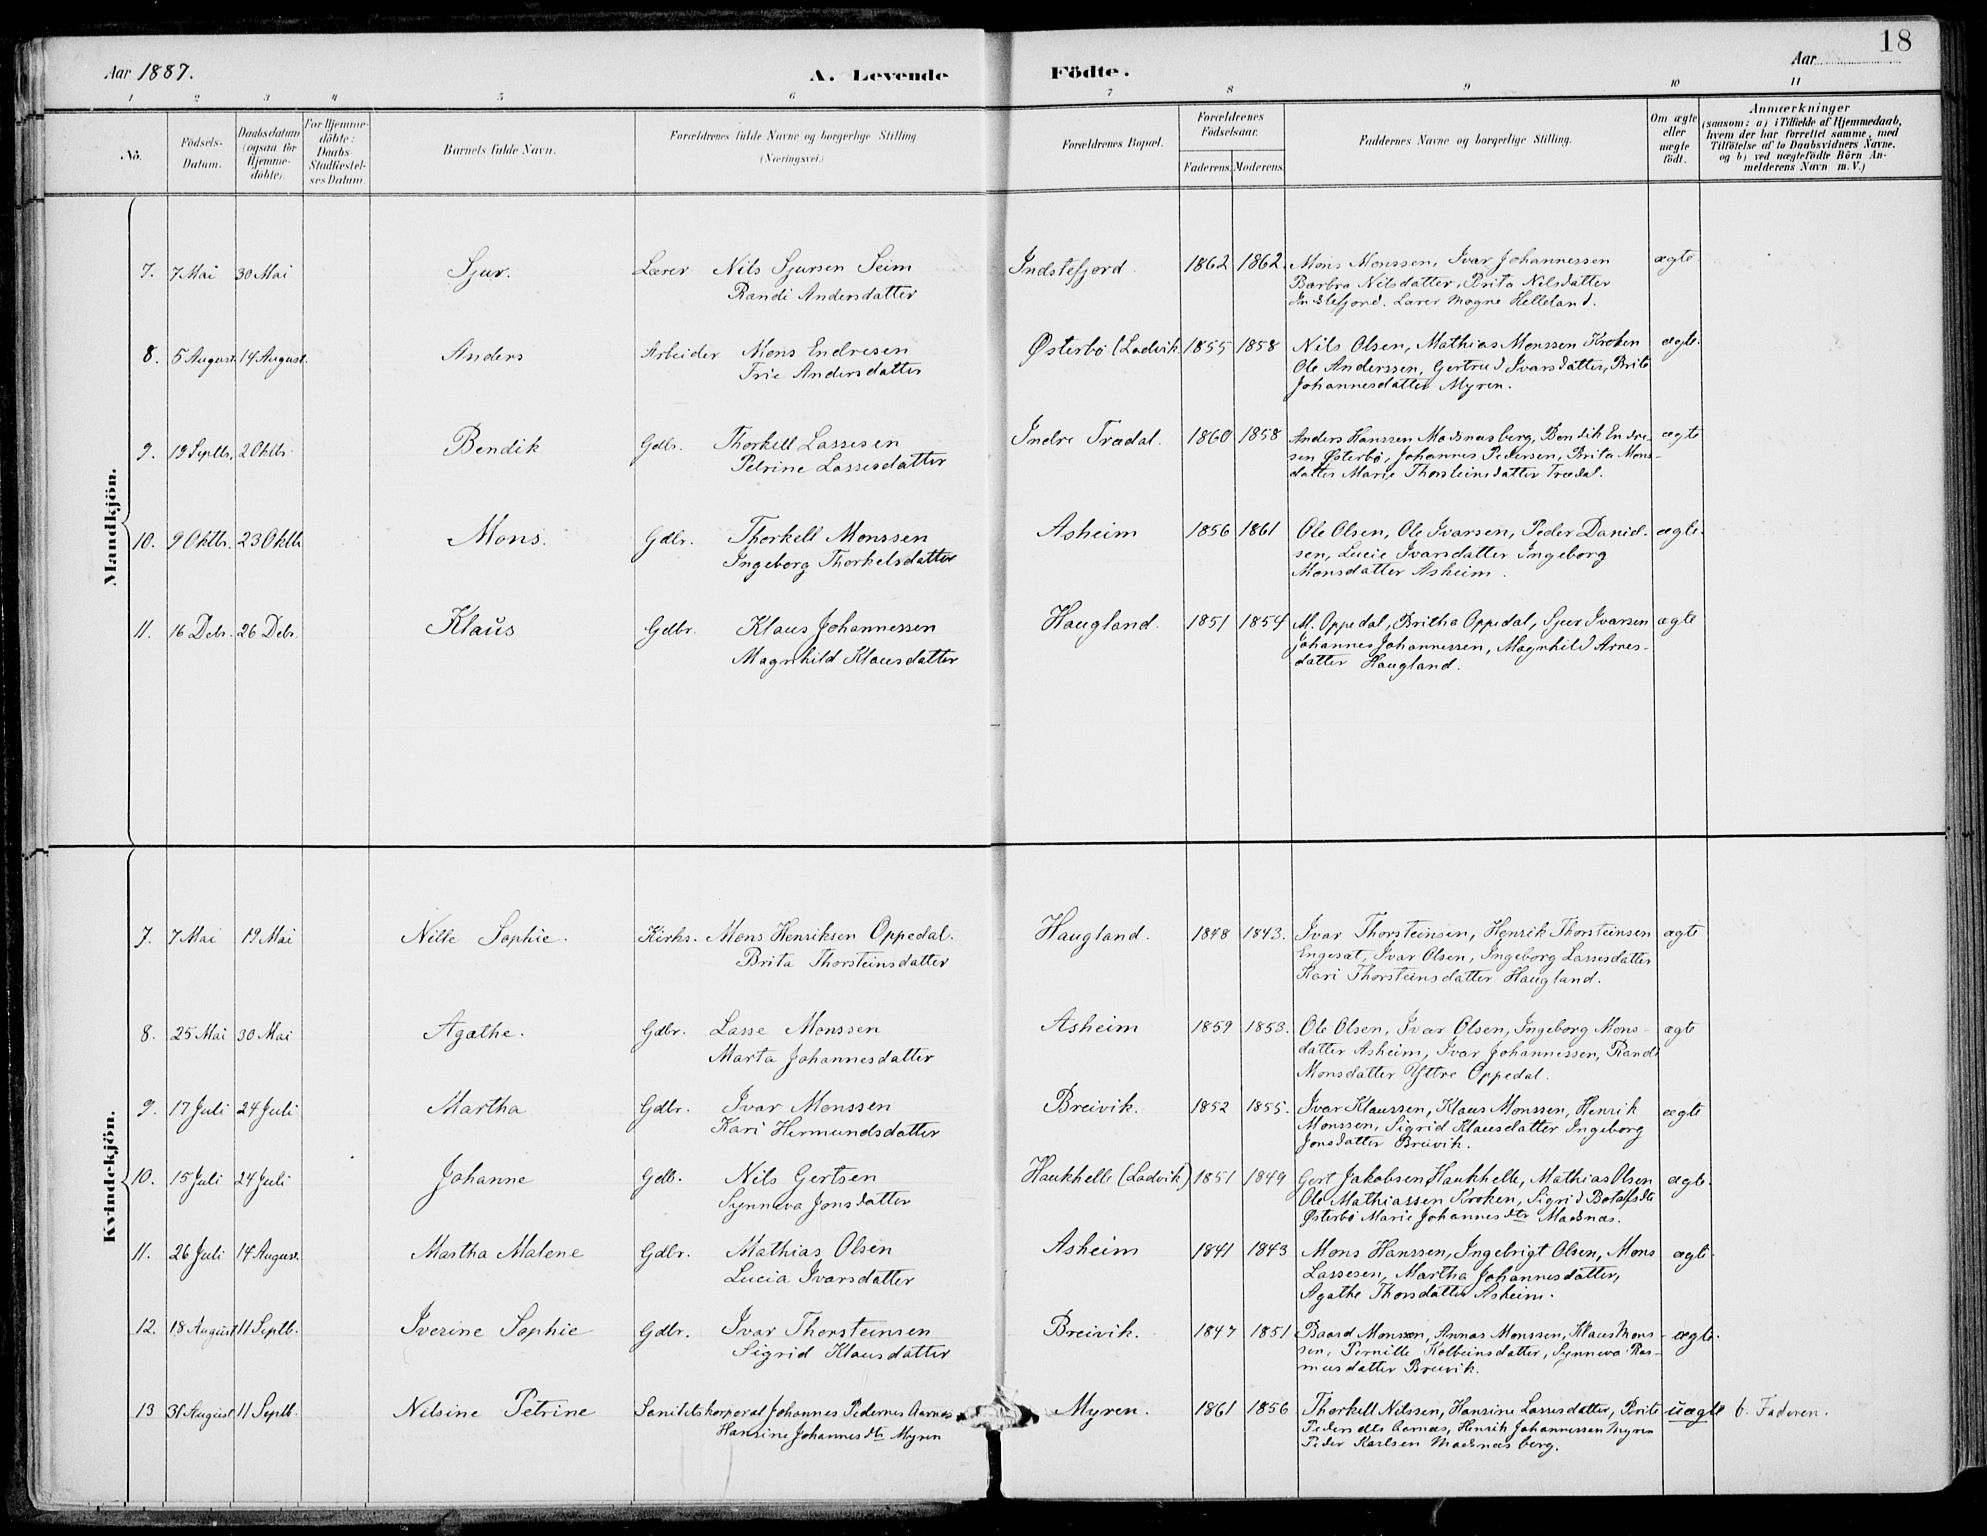 18
Aar 1887. A. Levende Födte. Aar
1 2 3 4 5 6 7 8 9 10 11
Nö. Födsels-Datum. Daabsdatum (ogsaa for Hjemme-döbte). For Hjemme-döbte: Daabs Stadfæstel-ses Datum Barnets fulde Navn. Forældrenes fulde Navne og borgerlige Stilling (Næringsvei.) Forældrenes Bopæl. Forældrenes Födselsaar. Faderens. Moderens. Faddernes Navne og borgerlige Stilling. Om ægte eller uægte födt. Anmærkninger (saasom: a) i Tilfælde af Hjemmedaab, hvem der har forrettet samme, med Tilföielse af to Daabsvidners Navne, og b) ved uægtefödte Börn An-melderens Navn m.V.)
Mandkjön.
7. 7 Mai 30 Mai Sjur. Lærer Nils Sjursen Seim Indstefjord. 1862 1862. Mons Monssen, Ivar Johannessen ægte
Randi Andersdatter Barbra Nilsdatter, Brita Nilsdatter
Indstefjord. Lærer Mogne Helleland.
8. 5 August. 14 August. Anders Arbeider Mons Endresen Østerbö (Ladvik 1855 1858 Nils Olsen, Mathias Monssen Kroken ægte.
Trie Andersdatter Ole Anderssen, Gertrud Ivarsdatter, Brite
Johannesdatter Myren.
9. 19 Septbr. 2 Oktbr. Bendik Gdbr. Thorkell Lassesen Indre Trædal. 1860 1858 Anders Hanssen Madsnasberg, Bendik Endre- ægte
Petrine Lassesdatter sen Østerbö, Johannes Pedersen, Brita Mons-
datter Marie Thorsteinsdatter Trædal.
10. 9 Oktbr. 23 Oktb. Mons. Gdbr. Thorkell Monssen Asheim 1856 1861 Ole Olsen, Ole Ivarsen, Peder Daniel- ægte.
Ingeborg Thorkelsdatter sen, Lucie Ivarsdatter Ingeborg
Monsdatter Asheim.
11. 16 Debr. 26 Debr. Klaus Gdbr. Klaus Johannessen Haugland. 1851 1854 M. Oppedal, Britha Oppedal, Sjur Ivarsen ægte
Magnhild Klausdatter Johannes Johannessen, Magnhild Arnes-
datter Haugland.
Kvindekjön.
7. 7 Mai 19 Mai Nille Sophie. Kirks. Mons Henriksen Oppedal. Haugland. 1848 1843. Ivar Thorsteinsen, Henrik Thorsteinsen ægte
Brita Thorsteinsdatter Engesæt, Ivar Olsen, Ingeborg Lassesdatter
Kari Thorsteinsdatter Haugland.
8. 25 Mai 30 Mai Agathe. Gdbr. Lasse Monssen Asheim 1859 1853. Ole Olsen, Ivar Olsen, Ingeborg Mons- ægte
Marta Johannesdatter datter Asheim, Ivar Johannessen, Randi
Monsdatter Yttre Oppedal.
9. 17 Juli 24 Juli Martha Gdbr. Ivar Monssen Breivik. 1852 1855. Ivar Klaussen, Klaus Monssen, Henrik ægte
Kari Hermundsdatter Monssen, Sigrid Klausdatter Ingeborg
Jonsdatter Breivik.
10. 15 Juli 24 Juli Johanne Gdb. Nils Gertsen Haukhelle (Ladvik) 1851 1849 Gert Jakobsen Haukhelle, Mathias Olsen ægte.
Synneva Jonsdatter Ole Mathiassen Kroken, Sigrid Botolfsdtr
Østerbö Marie Johannesdtr Madsnæs.
11. 26 Juli 14 August. Martha Malene Gdbr. Mathias Olsen Asheim 1841 1843 Mons Hanssen, Ingebrigt Olsen, Mons ægte.
Lucia Ivarsdatter Lassesen, Martha Johannesdatter,
Agathe Thorsdatter Asheim.
12. 18 August 11 Septb. Iverine Sophie Gdbr. Ivar Thorsteinsen Breivik. 1847 1851 Baard Monssen, Annas Monssen, Klaus Mons- ægte.
Sigrid Klausdatter sen, Pernille Kolbeinsdatter, Synneva Ras-
musdatter Breivik.
13 31 August 11 Septb. Nilsine Petrine Sanitetskorporal Johannes Pedersen Aarnas Myren. 1861 1856 Thorkell Nilssen, Hansine Lassesdatter, Brite uægte b. Faderen.
Hansine Johannesdtr Myren Pedersdtr Aarnæs, Henrik Johannessen Myren
Peder Karlsen Madsnas berg.